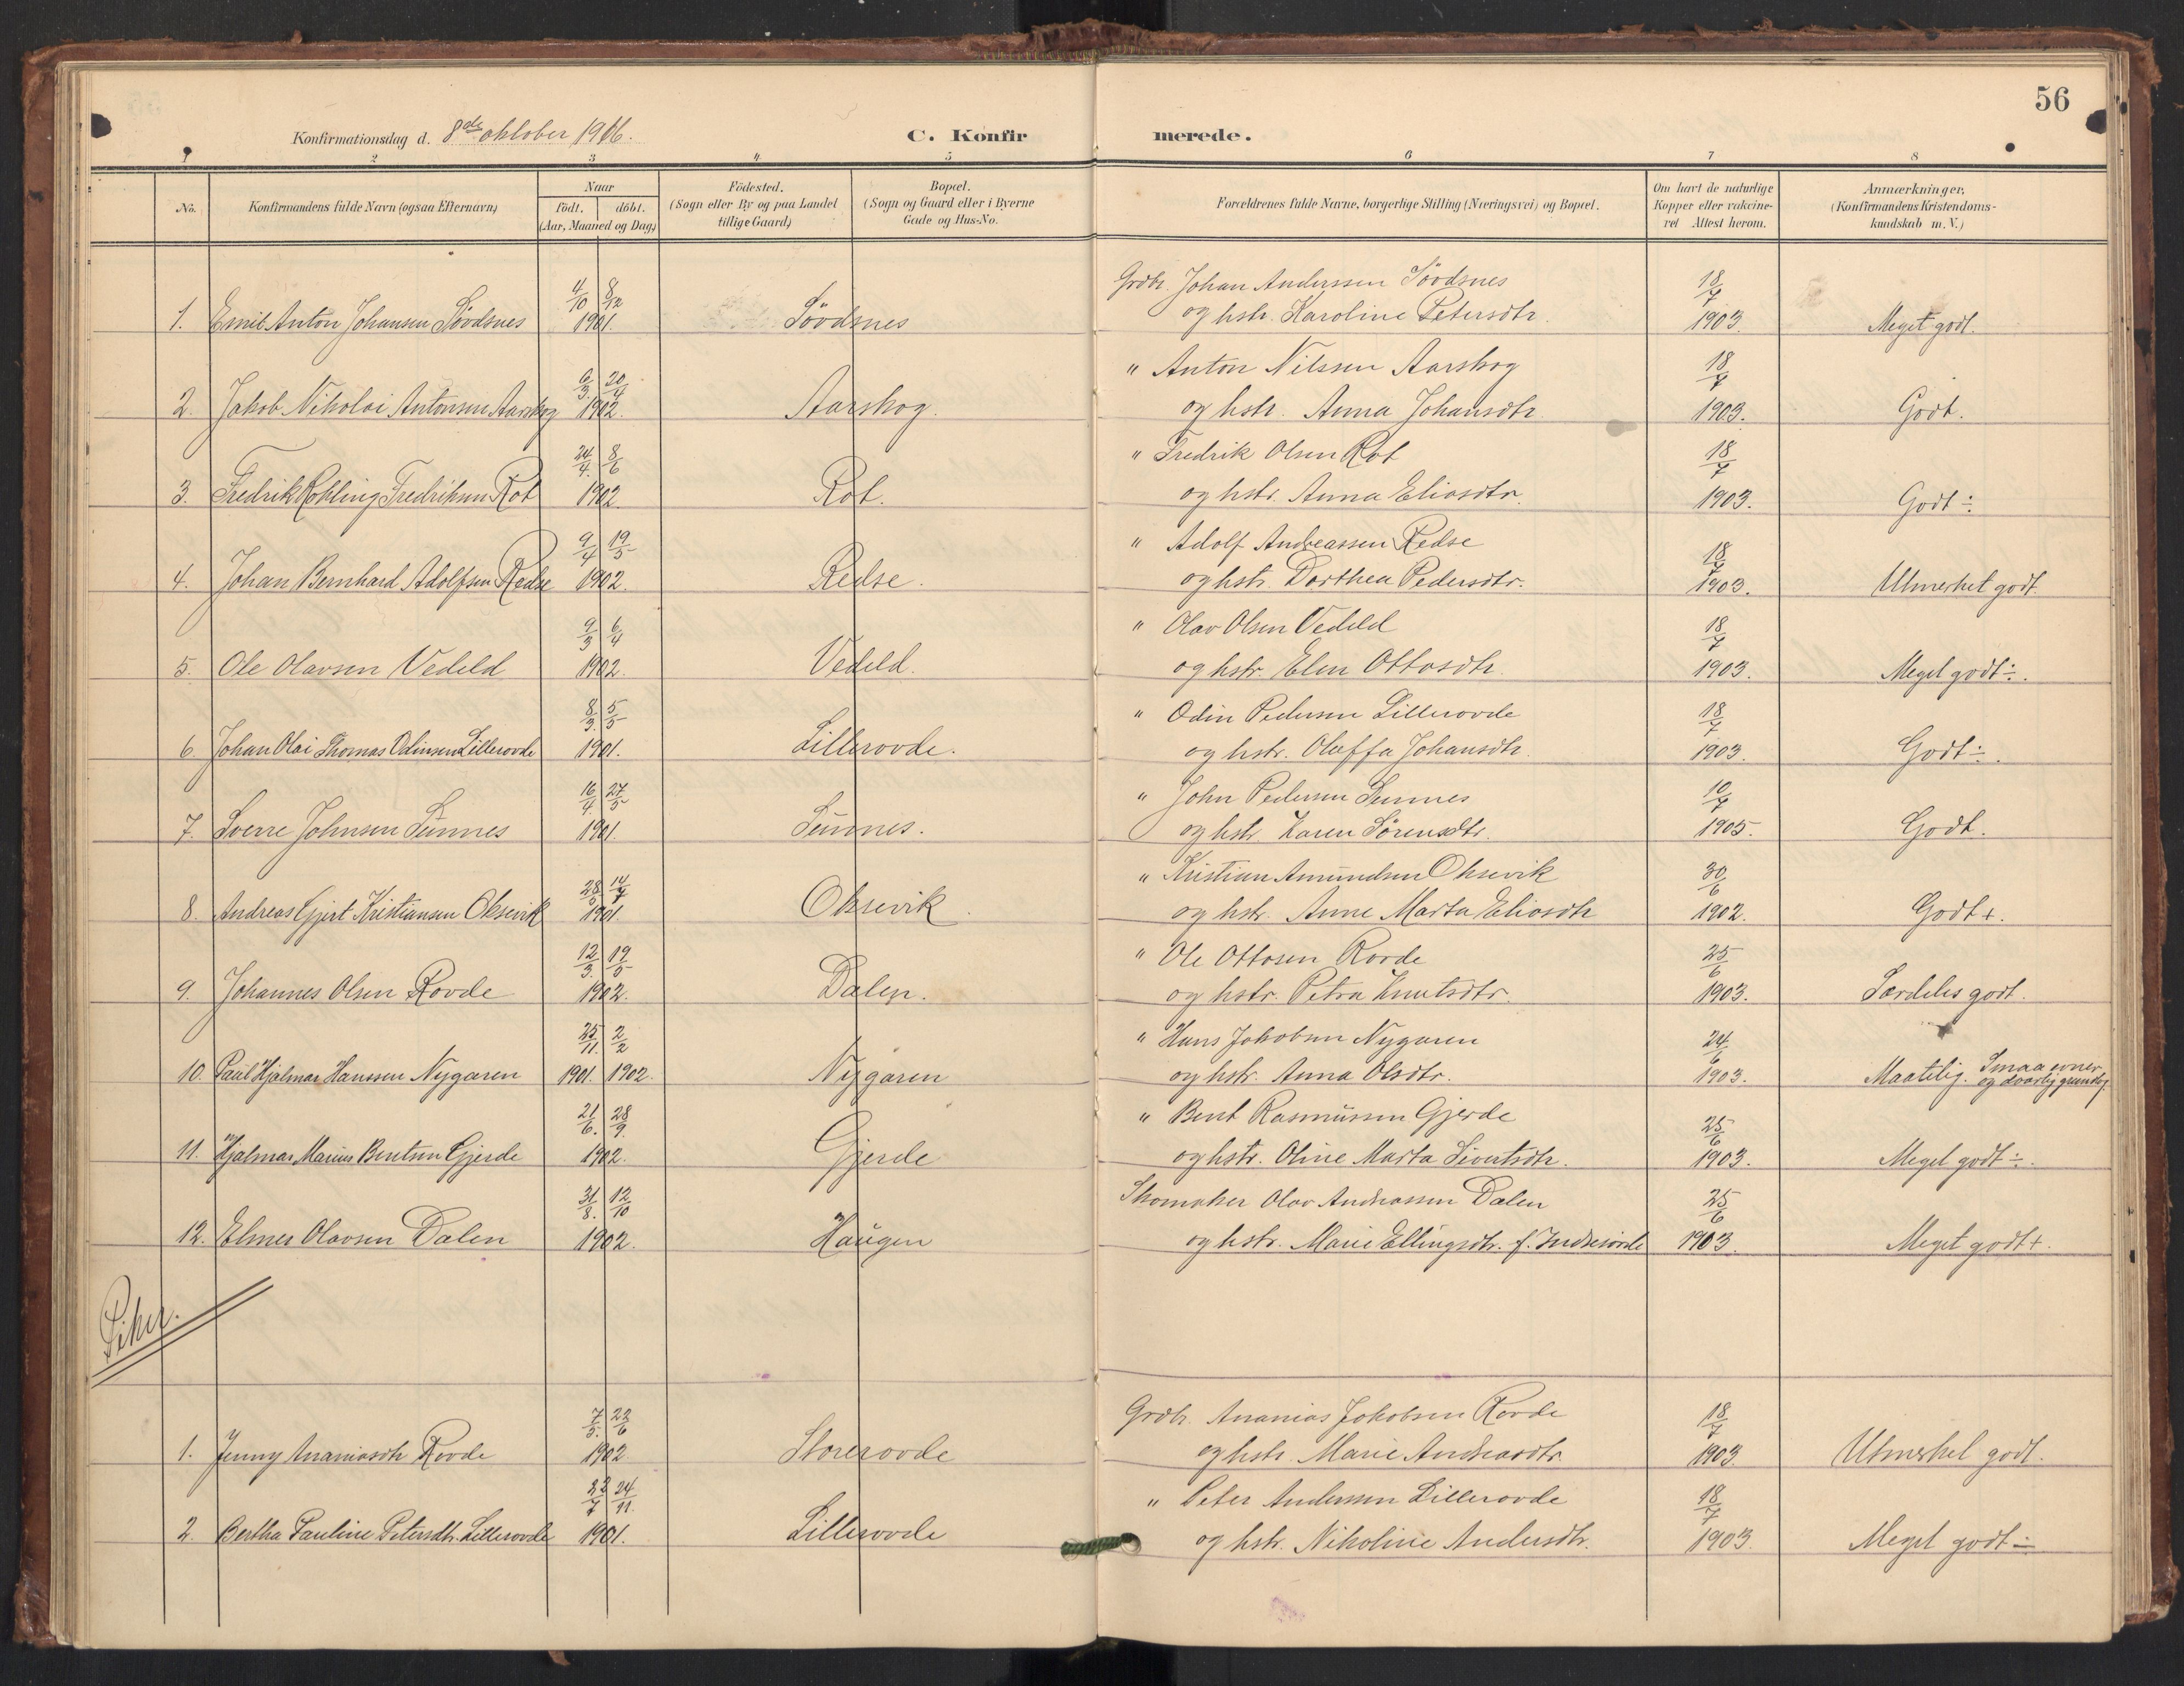 56
Konfirmationsdag d. 8de oktober 1916.
C. Konfirmerede.
1 2 3 4 5 6 7 8
No. Konfirmandens fulde Navn (ogsaa Efternavn)
Naar
födt. döbt.
(Aar, Maaned og Dag)
Födested.
(Sogn eller By og paa Landet
tillige Gaard)
Bopæl.
(Sogn og Gaard eller i Byerne
Gade og Hus-No.
Forældrenes fulde Navne, borgerlige Stilling (Næringsvei) og Bopæl.
Om havt de naturlige
Kopper eller vakcine-
ret Attest herom.
Anmærkninger,
(Konfirmandens Kristendoms-
kundskab m. V.)
4/10 8/12 Grdbr. Johan Anderssen Sövdsnes 18/7
1. Emil Anton Johansen Sövdsnes 1901. Sövdsnes og hstr. Karoline Petersdtr. 1903. Meget godt.
6/3. 20/4 " Anton Nilssen Aarskog 18/7
2. Jakob Nikolai Antonsen Aarskog 1902. Aarskog. og hstr. Anna Johansdtr. 1903. Godt.
24/4. 8/6 " Fredrik Olsen Rot 18/7
3. Fredrik Kobling Fredriksen Rot 1902. Rot. og hstr. Anna Eliasdtr. 1903. Godt ÷
9/4 19/5 " Adolf Andreassen Redse 18/7
4. Johan Bernhard Adolfsen Redse 1902. Redse. og hstr. Dorthea Pedersdtr. 1903. Utmerket godt.
9/3 6/4 " Olav Olsen Vedeld 18/7
5. Ole Olavsen Vedeld 1902. Vedeld. og hstr. Elen Ottosdtr. 1903. Meget godt ÷.
8/3. 5/5 " Odin Pedersen Lillerovde 18/7
6. Johan Olai Thomas Odinsen Lillerovde 1901. Lillerovde. og hstr. Oluffa Johansdtr. 1903. Godt ÷.
16/4 27/5 " John Pedersen Sunnes 10/7
7. Sverre Johnsen Sunnes 1901. Sunnes. og hstr. Karen Sörensdtr. 1905. Godt.
14/7 " Kristian Amundsen Oksevik 30/6
8. Andreas Gjert Kristiansen Oksevik 1901. Oksevik. og hstr. Anne Marta Eliasdtr 1902. Godt +.
12/3. 19/5 " Ole Ottosen Rovde 25/6
9. Johannes Olsen Rovde 1902. Dalen. og hstr. Petra Knutsdtr. 1903. Særdeles godt.
25/11. 2/2 " Hans Jakobsen Nygaren 24/6
10. Paul Hjalmar Hanssen Nygaren 1901. 1902. Nygaren og hstr. Anna Olsdtr. 1903. Maatelig. Smaa evner
og daarlig grundlag
21/6. 28/9. " Bent Rasmussen Gjerde 25/6
11. Hjalmar Marius Bentsen Gjerde 1902. Gjerde og hstr. Oline Marta Sivertsdtr. 1903. Meget godt ÷.
31/8. 12/10 Skomaker Olav Andreassen Dalen 25/6
12. Elmer Olavsen Dalen 1902. Haugen og hstr. Marie Ellingsdtr. f. Indreeide 1903. Meget godt +.
Piker.
7/5. 22/6 Grdbr. Ananias Jakobsen Rovde 18/7
1. Jenny Ananiasdtr Rovde 1902 Storerovde og hstr. Marie Andreasdtr. 1903. Utmerket godt.
22/7 24/11. " Peter Anderssen Lillerovde 18/7
2. Bertha Pauline Petersdtr. Lillerovde 1901. Lillerovde og hstr. Nikoline Andersdtr. 1903. Meget godt ÷